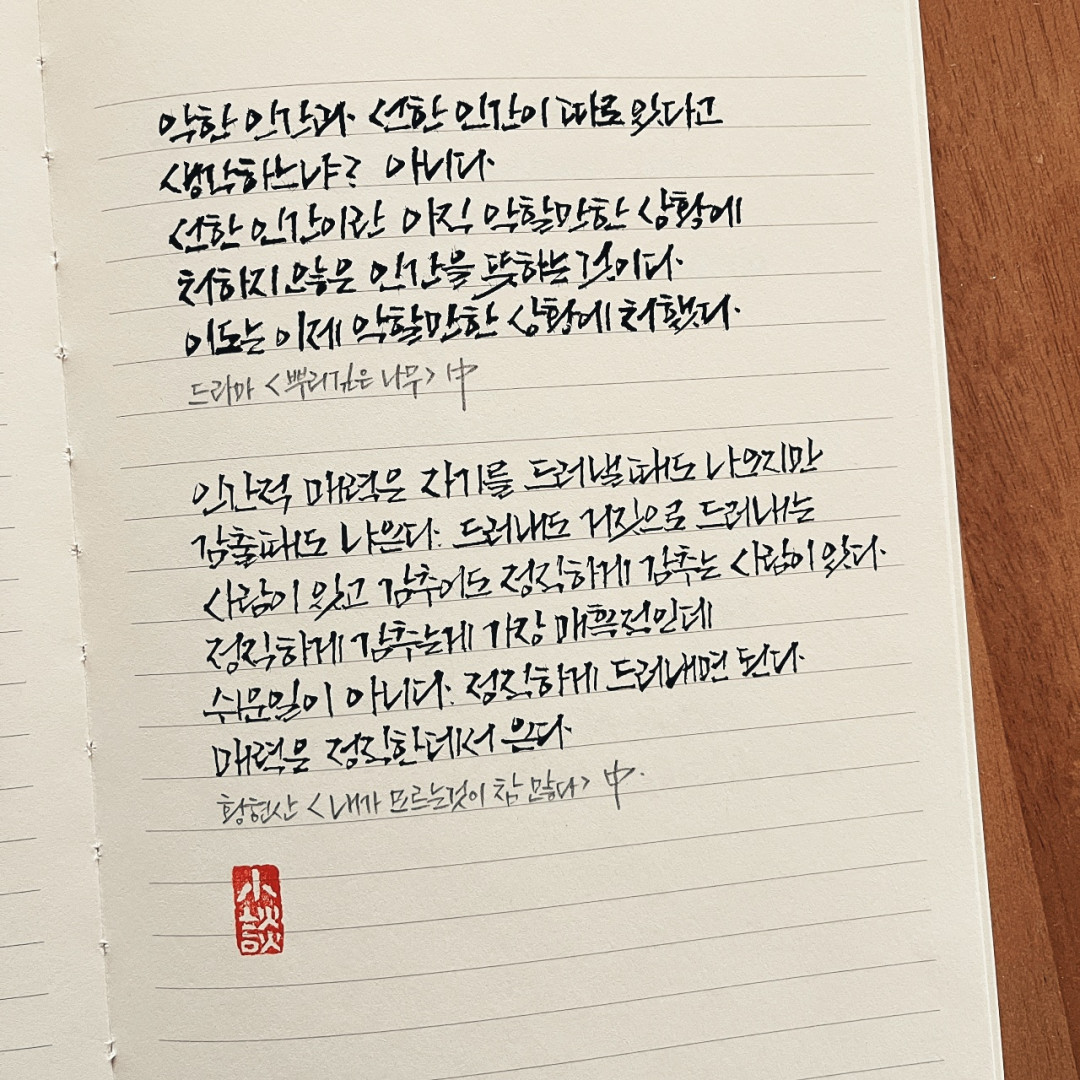 악한 인간과. 선한 인간이 따로 있다고
생각하느냐? 아니다.
선한 인간이란 아직 악할만한 상황에
처하지 않은 인간을 뜻하는 것이다.
이도는 이제 악할만한 상황에 처했다.
드라마 <뿌리깊은 나무> 中
인간적 매력은 자기를 드러낼때도 나오지만
감출때도 나온다. 드러내도 거짓으로 드러내는
사람이 있고 감추어도 정직하게 감추는 사람이 있다.
정직하게 감추는게 가장 매혹적인데
쉬운일이 아니다. 정직하게 드러내면 된다.
매력은 정직한데서 온다.
황현산 <내가 모르는것이 참 많다> 中.
小談